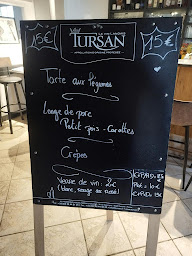 15€
TURSAN
15€
Tarte aux Légumes
Longe de porc
Petit pois - Carottes
Crêpes
Verre de vin: 2€
(blanc, rouge ou rosé)
Plat: 10€